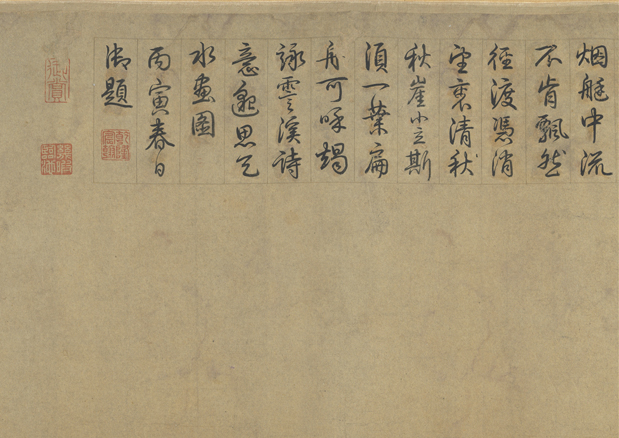 烟艇中流
不肯飄然
徑渡憑消
望裏清秋
秋崖小立斯
須一葉扁
舟可呼
詠雲溪詩
意邈思
水畫圖
丙寅春日
御題